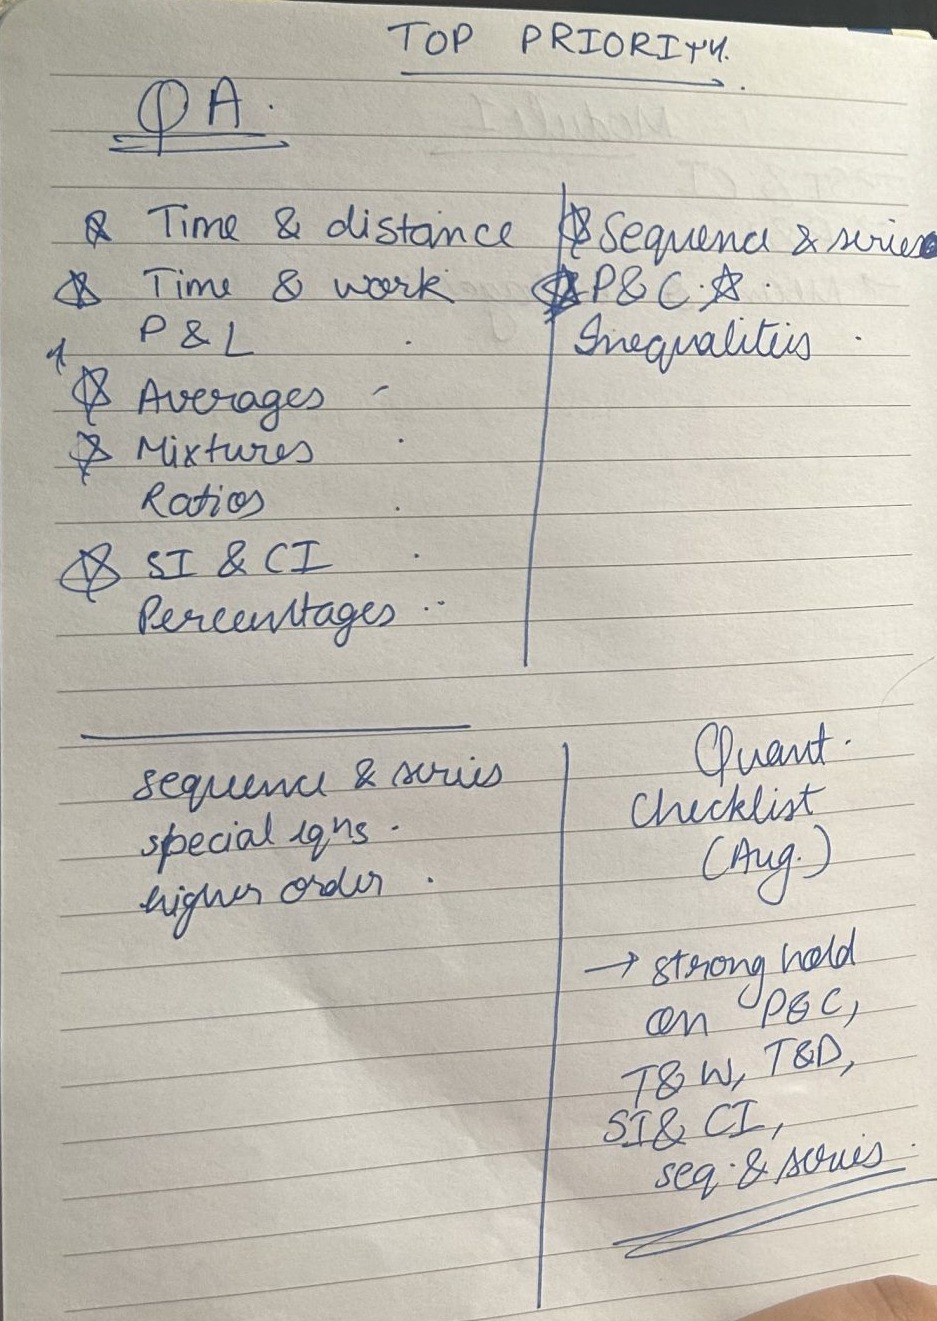 TOP PRIORITY.
QA.
Time & distance
Time & work
P & L
Averages
Mixtures
Ratios
SI & CI
Percentages
Sequence & series
P & C
Inequalities
sequence & series
special eqns.
higher order
Quant.
Checklist
(Aug.)
→ strong hold
on P&C,
T&W, T&D,
SI & CI,
seq. & series